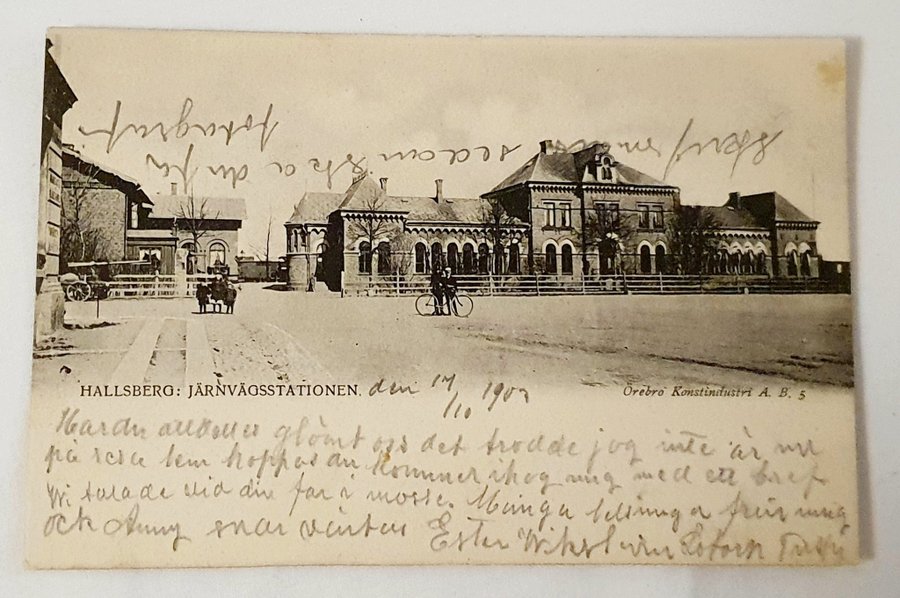 Skrif snart sedan ska du få
fotografi
HALLSBERG: JÄRNVÄGSSTATIONEN. den 17/10 1903
Örebro Konstindustri A. B. 5
Har du alldeles glömt oss det trodde jag inte är nu
på resa hem hoppas du kommer ihog mig med ett bref
Vi talade vid din far i mosse. Många helsningar från mig
ock Anny svar väntas Ester